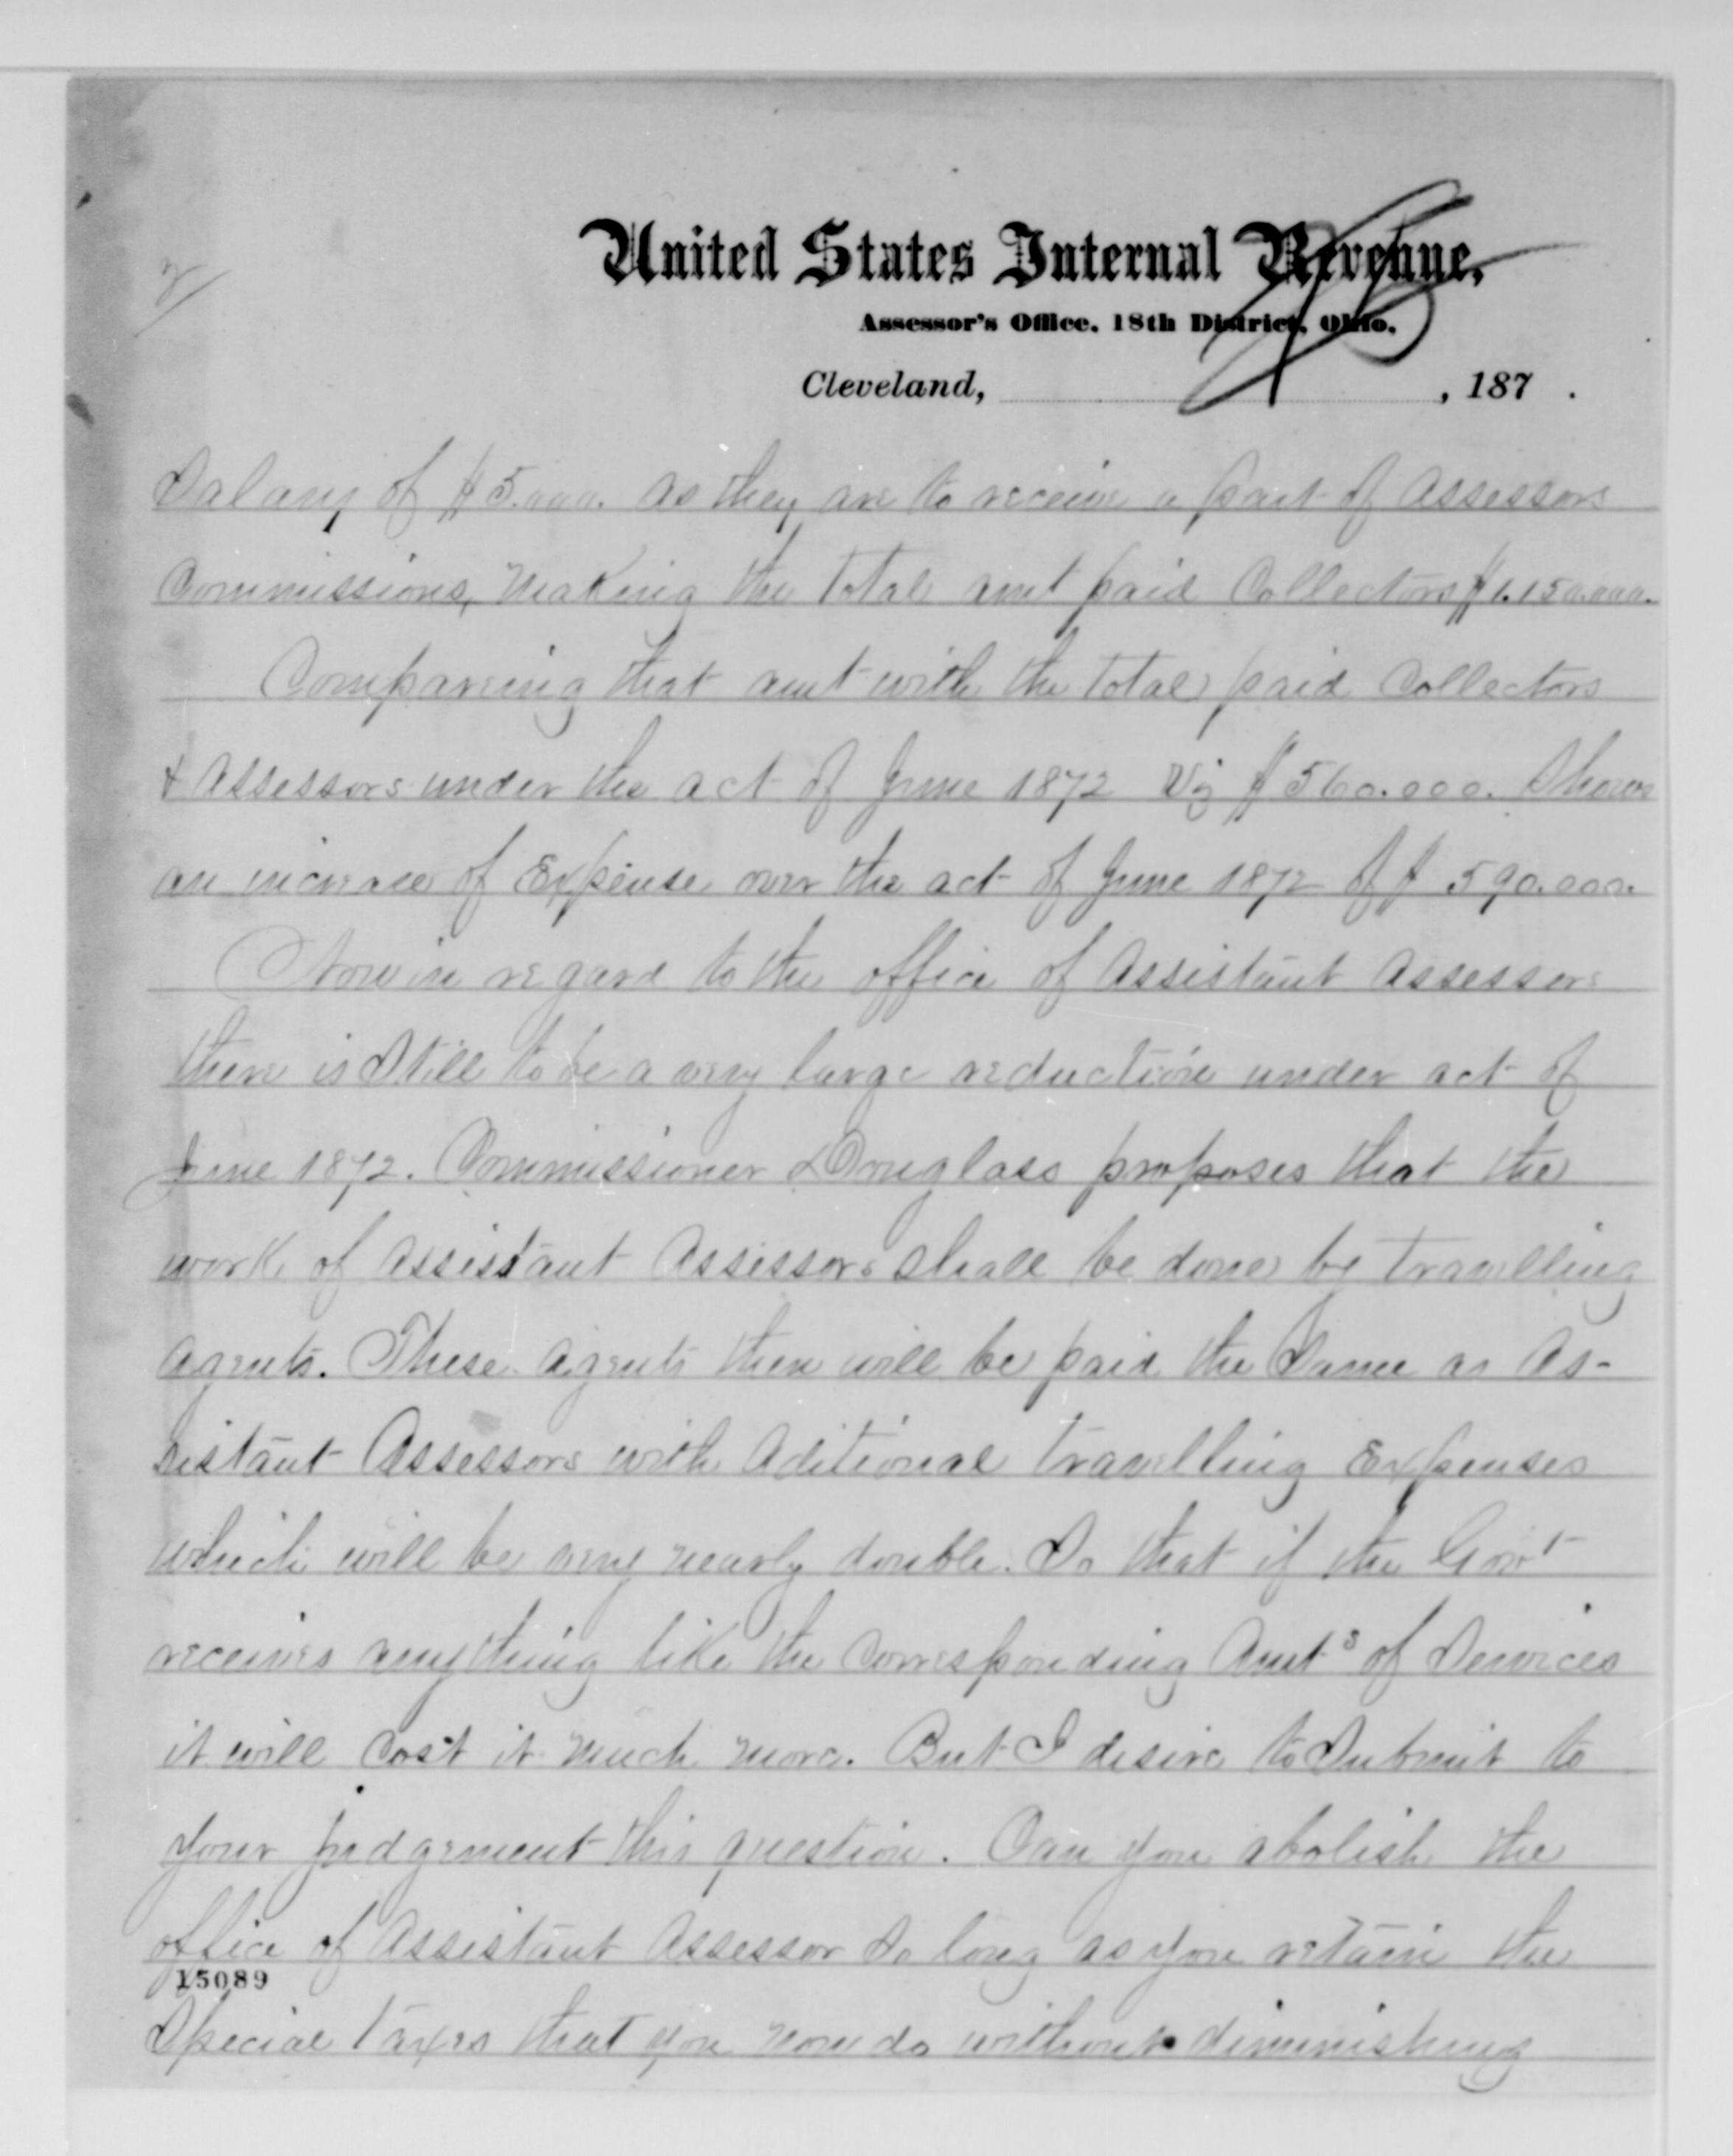 2/
United States Internal Revenue,
Assessor's Office, 18th District, Ohio.
Cleveland, , 187 .
Salary of $5.000. as they are to receive a part of Assessors
Commissions, making the total amt paid Collectors $1.150.000.
Compareing that amt with the total paid Collectors
& Assessors under the act of June 1872 Viz $560.000. Shows
an increase of Expense over the act of June 1872 of $590.000.
Now in regard to the office of Assistant Assessors
there is Still to be a very large reduction under act of
June 1872. Commissioner Douglass proposes that the
work of Assistant Assessors shall be done by travelling
agents. These agents then will be paid the Same as As-
sistant Assessors with Aditional travelling Expenses
which will be very nearly double. So that if the Govt
receives anything like the Corresponding Amts of Services
it will Cost it much more. But I desire to Submit to
your judgement this question. Can you abolish the
office of Assistant Assessor So long as you retain the
15089
Special taxes that you now do without diminishing